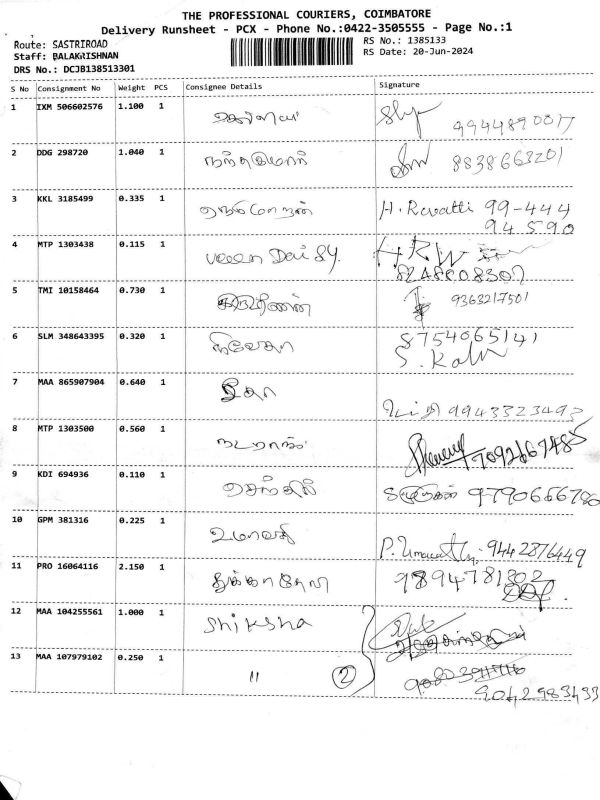 THE PROFESSIONAL COURIERS, COIMBATORE
Delivery Runsheet - PCX - Phone No.:0422-3505555 - Page No.:1
Route: SASTRIROAD
RS No.: 1385133
Staff: BALAKRISHNAN
RS Date: 20-Jun-2024
DRS No.: DCJB138513301
S No Consignment No Weight PCS Consignee Details Signature
1 IXM 506602576 1.100 1
9944890077
2 DDG 298720 1.040 1 நந்தகுமார்
8838663201
3 KKL 3185499 0.335 1 H. Revathi 99-444
94 590
4 MTP 1303438 0.115 1 Daisy. HRW
8248808307
5 TMI 10158464 0.730 1 9363217501
6 SLM 348643395 0.320 1 நிவேதா 8754065141
7 MAA 865907904 0.640 1
9943323493
8 MTP 1303500 0.560 1 நடராஜ்
7092667485
9 KDI 694936 0.110 1 செந்தில் 9790666780
10 GPM 381316 0.225 1 உமாவதி
P. Umavathi 9442876449
11 PRO 16064116 2.150 1 9894781302
12 MAA 104255561 1.000 1 Shiksha
13 MAA 107979102 0.250 1 " 2
9042983433